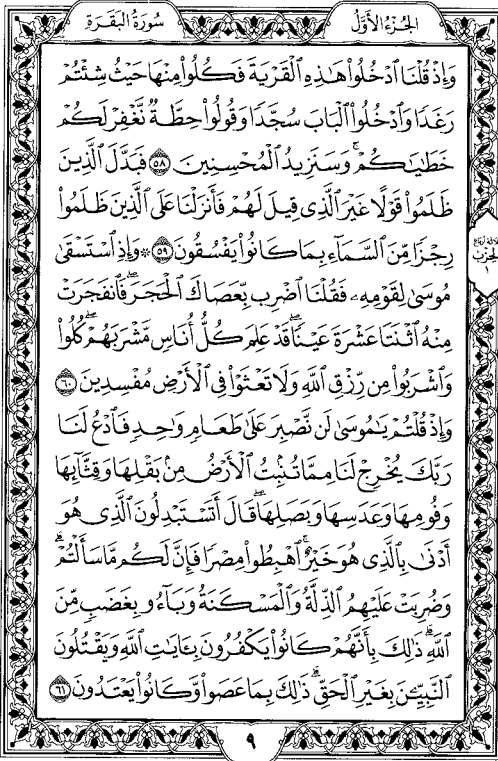 الجزء الأول
سورة البقرة
وَإِذْ قُلْنَا ٱدْخُلُوا۟ هَٰذِهِ ٱلْقَرْيَةَ فَكُلُوا۟ مِنْهَا حَيْثُ شِئْتُمْ
رَغَدًا وَٱدْخُلُوا۟ ٱلْبَابَ سُجَّدًا وَقُولُوا۟ حِطَّةٌ نَّغْفِرْ لَكُمْ
خَطَٰيَٰكُمْ ۚ وَسَنَزِيدُ ٱلْمُحْسِنِينَ ٥٨ فَبَدَّلَ ٱلَّذِينَ
ظَلَمُوا۟ قَوْلًا غَيْرَ ٱلَّذِى قِيلَ لَهُمْ فَأَنزَلْنَا عَلَى ٱلَّذِينَ ظَلَمُوا۟
رِجْزًا مِّنَ ٱلسَّمَآءِ بِمَا كَانُوا۟ يَفْسُقُونَ ٥٩ * وَإِذِ ٱسْتَسْقَىٰ
ثلاثة أرباع
الحزب
١
مُوسَىٰ لِقَوْمِهِۦ فَقُلْنَا ٱضْرِب بِّعَصَاكَ ٱلْحَجَرَ ۖ فَٱنفَجَرَتْ
مِنْهُ ٱثْنَتَا عَشْرَةَ عَيْنًا ۖ قَدْ عَلِمَ كُلُّ أُنَاسٍ مَّشْرَبَهُمْ ۖ كُلُوا۟
وَٱشْرَبُوا۟ مِن رِّزْقِ ٱللَّهِ وَلَا تَعْثَوْا۟ فِى ٱلْأَرْضِ مُفْسِدِينَ ٦٠
وَإِذْ قُلْتُمْ يَٰمُوسَىٰ لَن نَّصْبِرَ عَلَىٰ طَعَامٍ وَٰحِدٍ فَٱدْعُ لَنَا
رَبَّكَ يُخْرِجْ لَنَا مِمَّا تُنۢبِتُ ٱلْأَرْضُ مِنۢ بَقْلِهَا وَقِثَّآئِهَا
وَفُومِهَا وَعَدَسِهَا وَبَصَلِهَا ۖ قَالَ أَتَسْتَبْدِلُونَ ٱلَّذِى هُوَ
أَدْنَىٰ بِٱلَّذِى هُوَ خَيْرٌ ۚ ٱهْبِطُوا۟ مِصْرًا فَإِنَّ لَكُم مَّا سَأَلْتُمْ ۗ
وَضُرِبَتْ عَلَيْهِمُ ٱلذِّلَّةُ وَٱلْمَسْكَنَةُ وَبَآءُو بِغَضَبٍ مِّنَ
ٱللَّهِ ۗ ذَٰلِكَ بِأَنَّهُمْ كَانُوا۟ يَكْفُرُونَ بِـَٔايَٰتِ ٱللَّهِ وَيَقْتُلُونَ
ٱلنَّبِيِّـۧنَ بِغَيْرِ ٱلْحَقِّ ۗ ذَٰلِكَ بِمَا عَصَوا۟ وَّكَانُوا۟ يَعْتَدُونَ ٦١
٩